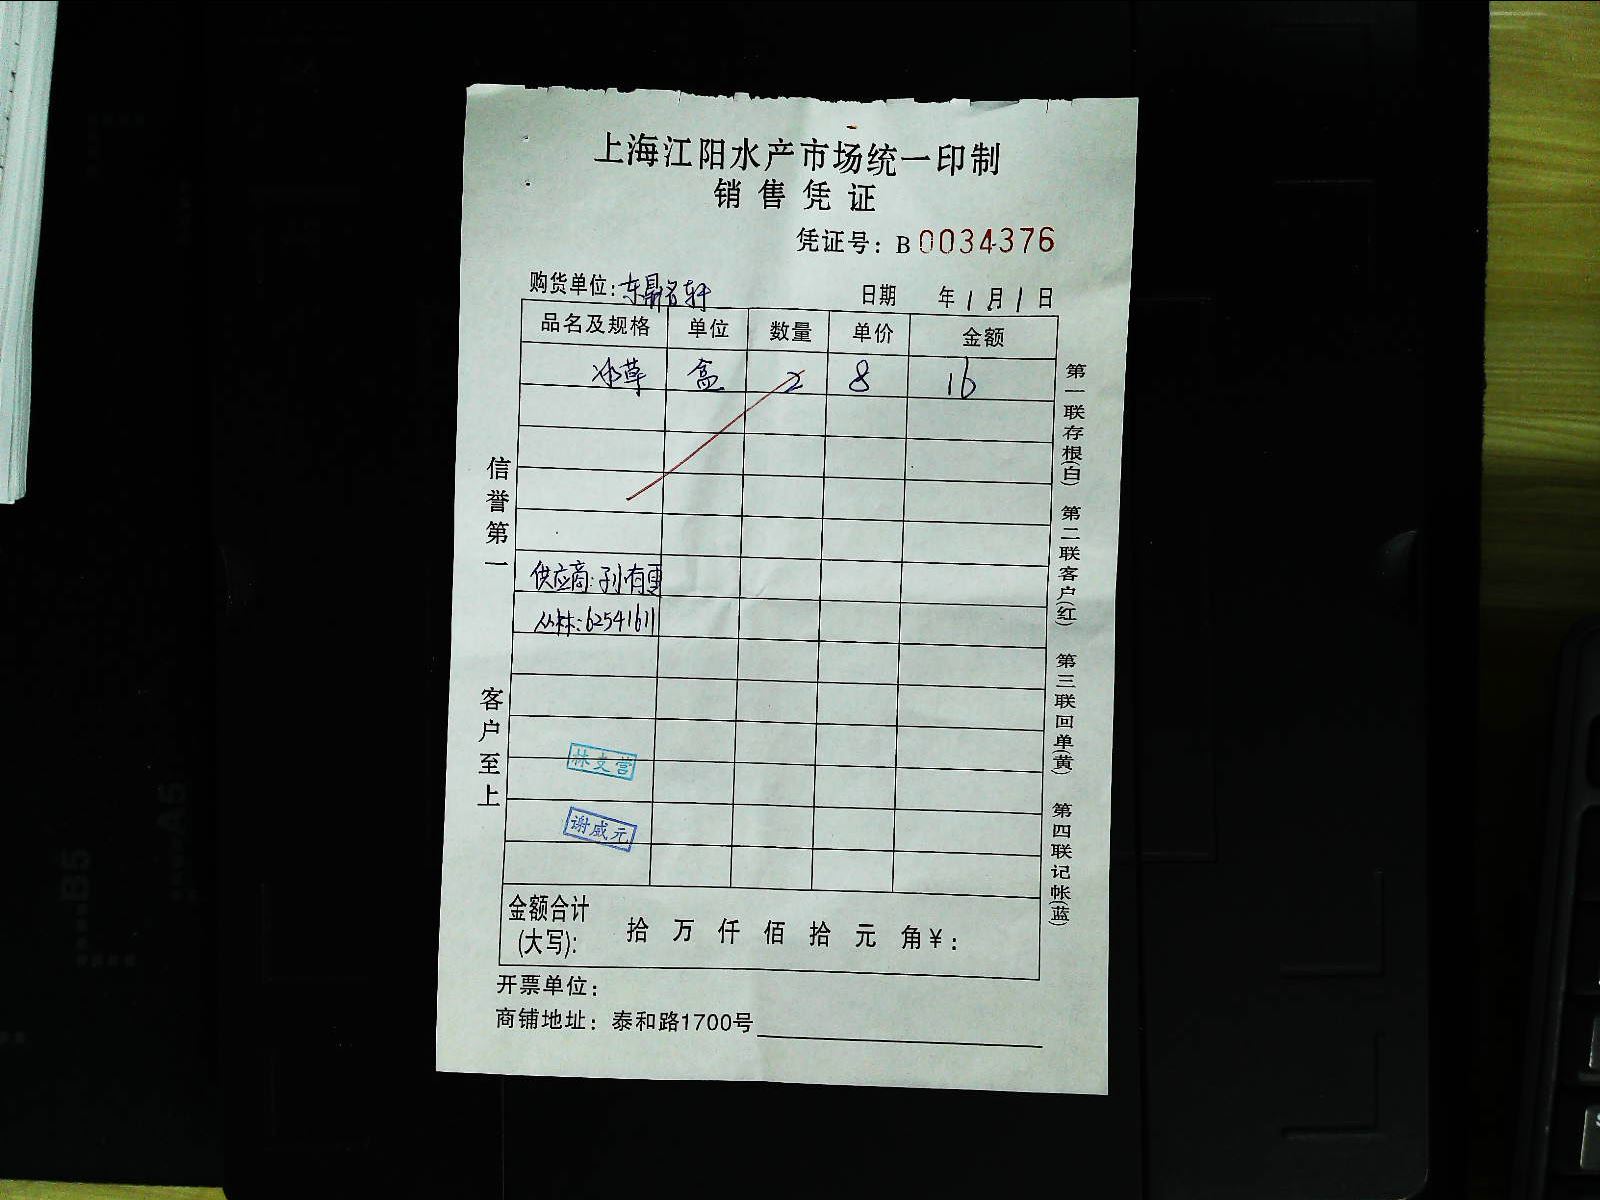 上海江阳水产市场统一印制
销售凭证
凭证号：B 0034376
购货单位：东鼎名轩 日期 年 1 月 1 日
品名及规格 单位 数量 单价 金额
冰草 盒 2 8 16
供应商：孙有雪
丛林：62541611
林文营
谢盛元
金额合计(大写)： 拾 万 仟 佰 拾 元 角￥：
开票单位：
商铺地址：泰和路1700号
信誉第一
客户至上
第一联存根(白) 第二联客户(红) 第三联回单(黄) 第四联记帐(蓝)
B5
A5